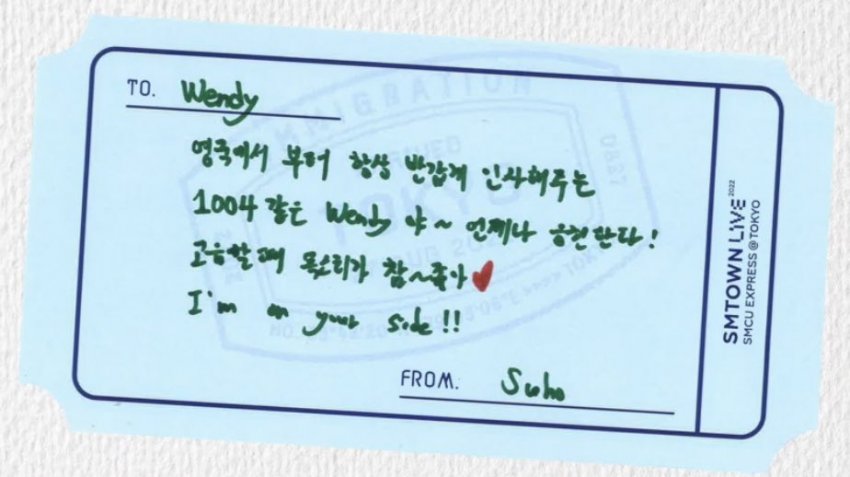 TO. Wendy
영국에서 부터 항상 반갑게 인사해주는
1004 같은 Wendy 야~ 언제나 응원한다!
고음할때 목소리가 참~좋아
I'm on your side!!
FROM. Suho
SMTOWN LIVE 2022
SMCU EXPRESS @TOKYO
IMMIGRATION
TOKYO